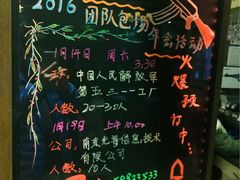 2016
团队包场
年会活动
1月14日 周六
3:30
中国人民解放军
第五三一一工厂
人数:20-30人
1月19日 上午10:00
公司:南京先普信息技术
有限公司
人数:10人
火爆预订中: